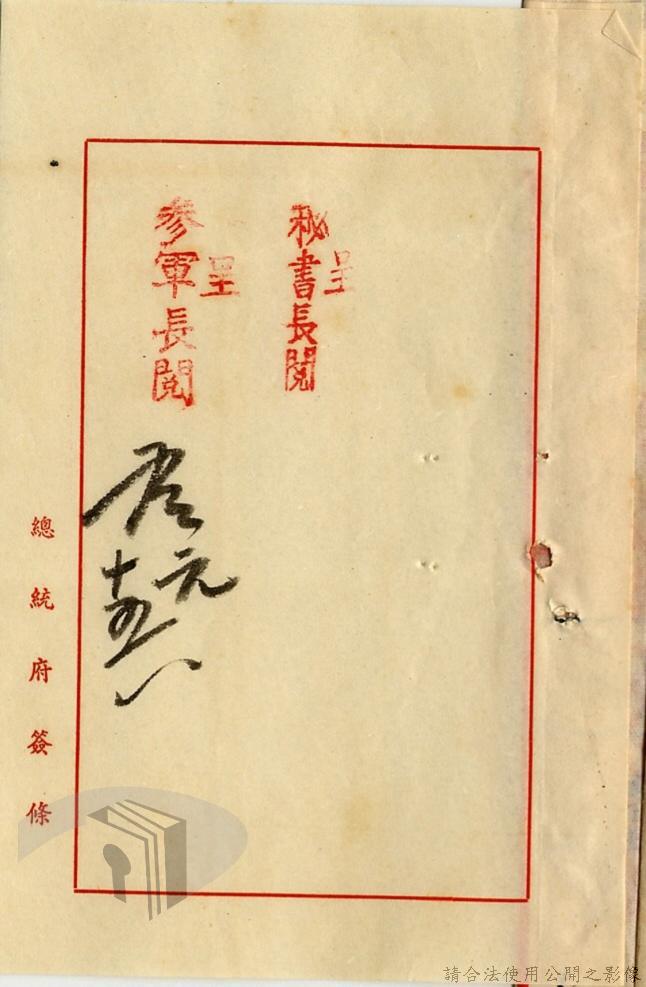 呈
秘書長閱
呈
參軍長閱
總統府簽條
請合法使用公開之影像